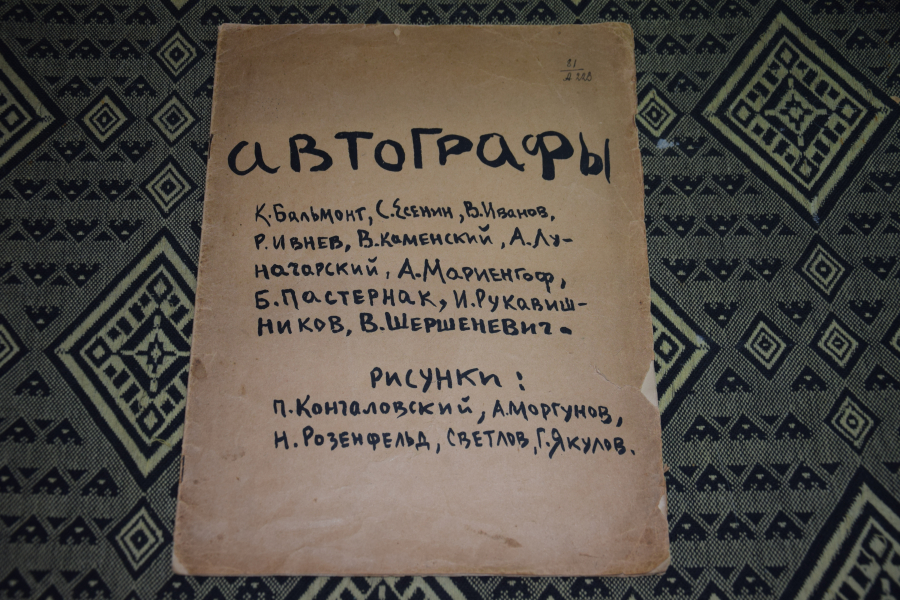 81
А 228
автографы
К. Бальмонт, С. Есенин, В. Иванов,
Р. Ивнев, В. Каменский, А. Лу-
начарский, А. Мариенгоф,
Б. Пастернак, И. Рукавиш-
ников, В. Шершеневич.
рисунки:
П. Кончаловский, А. Моргунов,
Н. Розенфельд, Светлов, Г. Якулов.